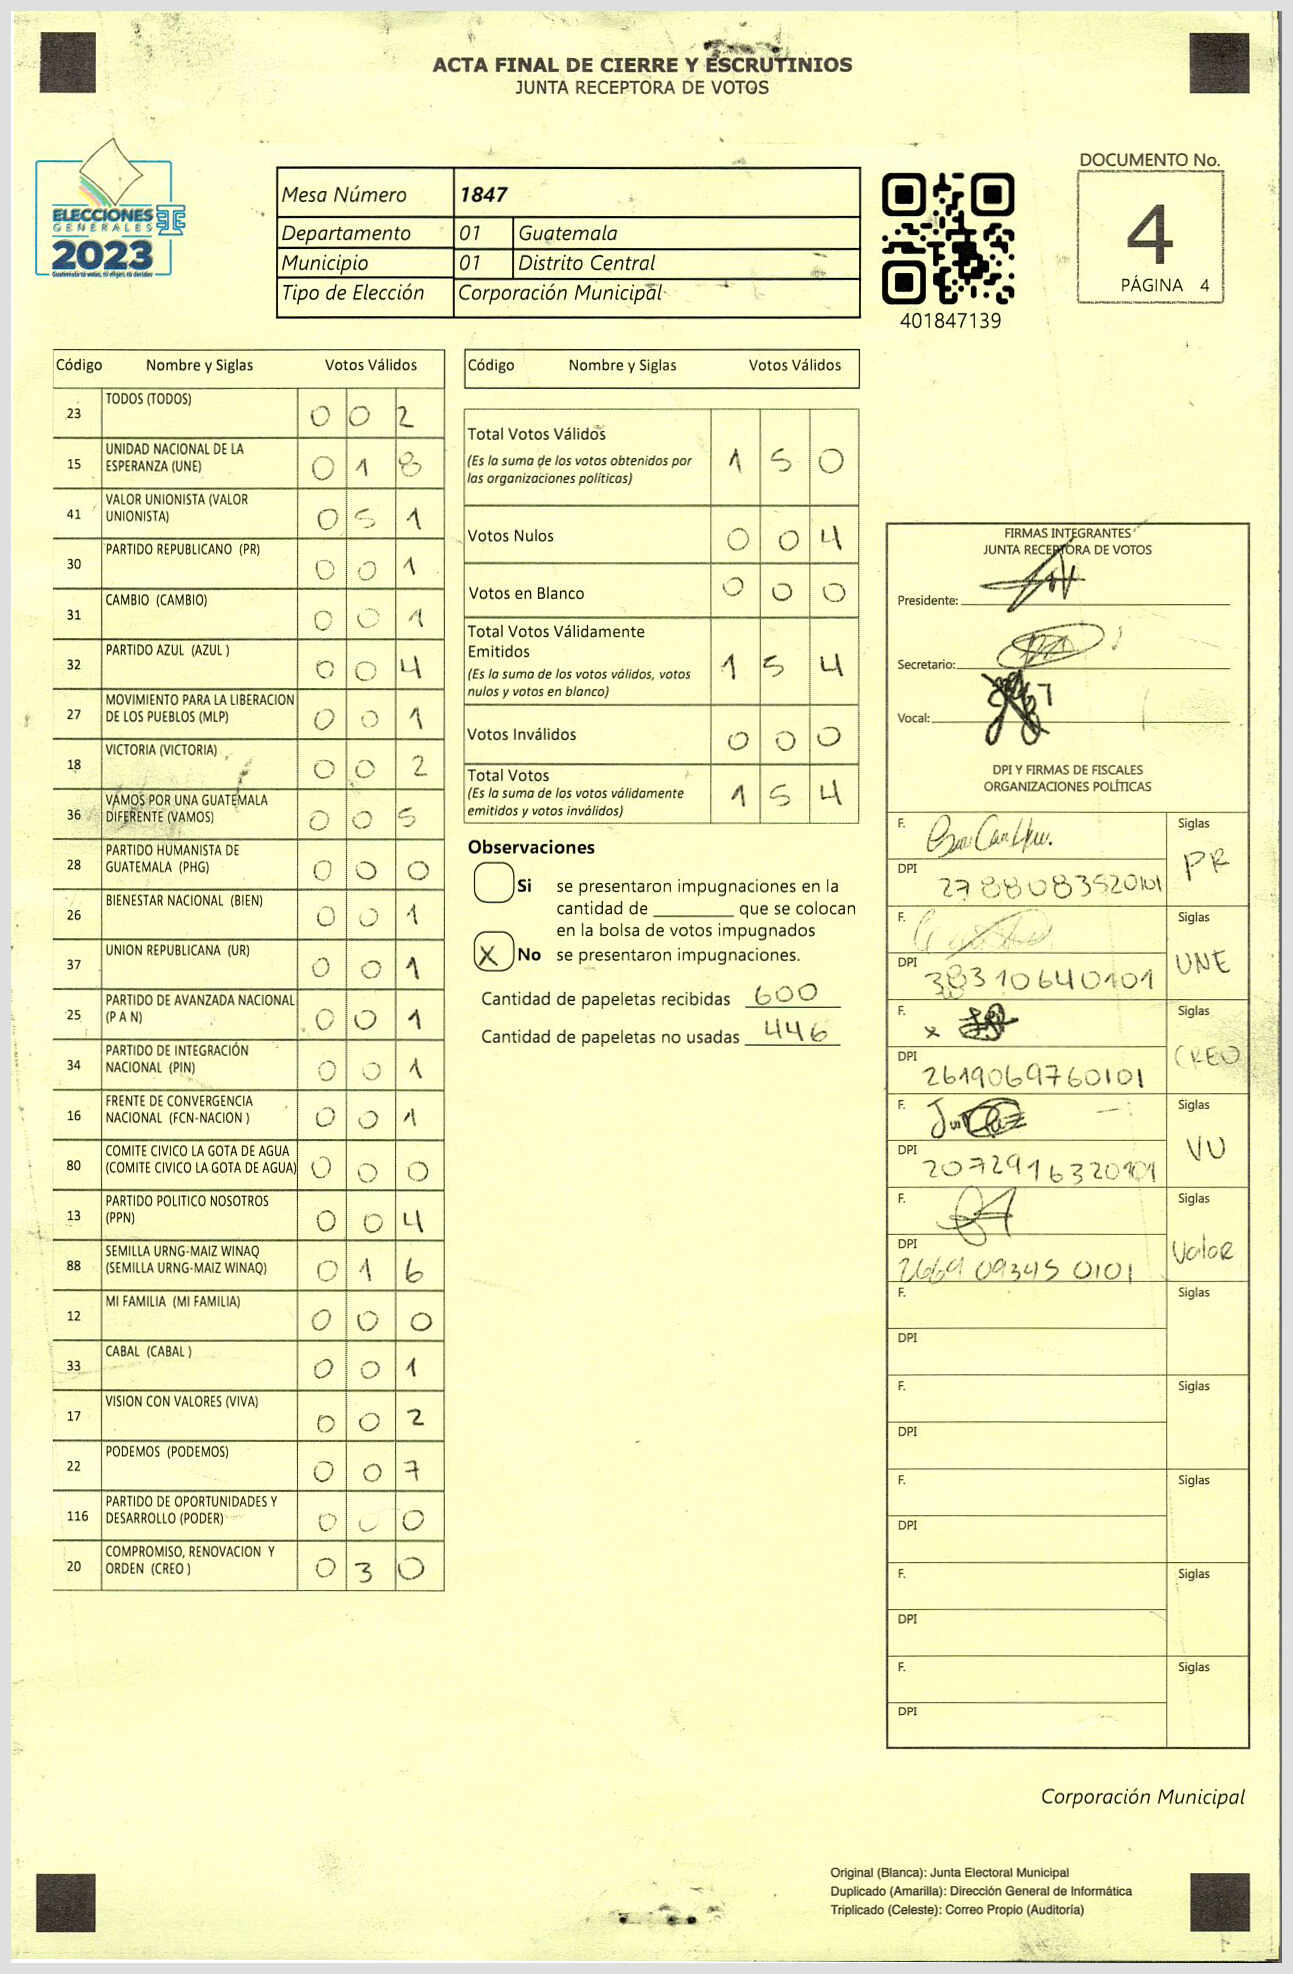 ACTA FINAL DE CIERRE Y ESCRUTINIOS
JUNTA RECEPTORA DE VOTOS
ELECCIONES
GENERALES
2023
Mesa Número 1847
Departamento 01 Guatemala
Municipio 01 Distrito Central
Tipo de Elección Corporación Municipal
401847139
DOCUMENTO No.
4
PÁGINA 4
Código Nombre y Siglas Votos Válidos
23 TODOS (TODOS) 0 0 2
15 UNIDAD NACIONAL DE LA
ESPERANZA (UNE) 0 1 8
41 VALOR UNIONISTA (VALOR
UNIONISTA) 0 5 1
30 PARTIDO REPUBLICANO (PR) 0 0 1
31 CAMBIO (CAMBIO) 0 0 1
32 PARTIDO AZUL (AZUL ) 0 0 4
27 MOVIMIENTO PARA LA LIBERACION
DE LOS PUEBLOS (MLP) 0 0 1
18 VICTORIA (VICTORIA) 0 0 2
36 VAMOS POR UNA GUATEMALA
DIFERENTE (VAMOS) 0 0 5
28 PARTIDO HUMANISTA DE
GUATEMALA (PHG) 0 0 0
26 BIENESTAR NACIONAL (BIEN) 0 0 1
37 UNION REPUBLICANA (UR) 0 0 1
25 PARTIDO DE AVANZADA NACIONAL
(P A N) 0 0 1
34 PARTIDO DE INTEGRACIÓN
NACIONAL (PIN) 0 0 1
16 FRENTE DE CONVERGENCIA
NACIONAL (FCN-NACION ) 0 0 1
80 COMITE CIVICO LA GOTA DE AGUA
(COMITE CIVICO LA GOTA DE AGUA) 0 0 0
13 PARTIDO POLITICO NOSOTROS
(PPN) 0 0 4
88 SEMILLA URNG-MAIZ WINAQ
(SEMILLA URNG-MAIZ WINAQ) 0 1 6
12 MI FAMILIA (MI FAMILIA) 0 0 0
33 CABAL (CABAL ) 0 0 1
17 VISION CON VALORES (VIVA) 0 0 2
22 PODEMOS (PODEMOS) 0 0 7
116 PARTIDO DE OPORTUNIDADES Y
DESARROLLO (PODER) 0 0 0
20 COMPROMISO, RENOVACION Y
ORDEN (CREO ) 0 3 0
Código Nombre y Siglas Votos Válidos
Total Votos Válidos
(Es la suma de los votos obtenidos por
las organizaciones políticas) 1 5 0
Votos Nulos 0 0 4
Votos en Blanco 0 0 0
Total Votos Válidamente
Emitidos
(Es la suma de los votos válidos, votos
nulos y votos en blanco) 1 5 4
Votos Inválidos 0 0 0
Total Votos
(Es la suma de los votos válidamente
emitidos y votos inválidos) 1 5 4
Observaciones
Si se presentaron impugnaciones en la
cantidad de ________ que se colocan
en la bolsa de votos impugnados
X No se presentaron impugnaciones.
Cantidad de papeletas recibidas 600
Cantidad de papeletas no usadas 446
FIRMAS INTEGRANTES
JUNTA RECEPTORA DE VOTOS
Presidente:
Secretario:
Vocal:
DPI Y FIRMAS DE FISCALES
ORGANIZACIONES POLÍTICAS
F. Siglas
PR
DPI 2788083520101
F. Siglas
UNE
DPI
F. x Siglas
CREO
DPI 2619069760101
F. Siglas
VU
DPI 2072916320101
F. Siglas
Valor
DPI 2669093450101
F. Siglas
DPI
F. Siglas
DPI
F. Siglas
DPI
F. Siglas
DPI
F. Siglas
DPI
Corporación Municipal
Original (Blanca): Junta Electoral Municipal
Duplicado (Amarilla): Dirección General de Informática
Triplicado (Celeste): Correo Propio (Auditoría)